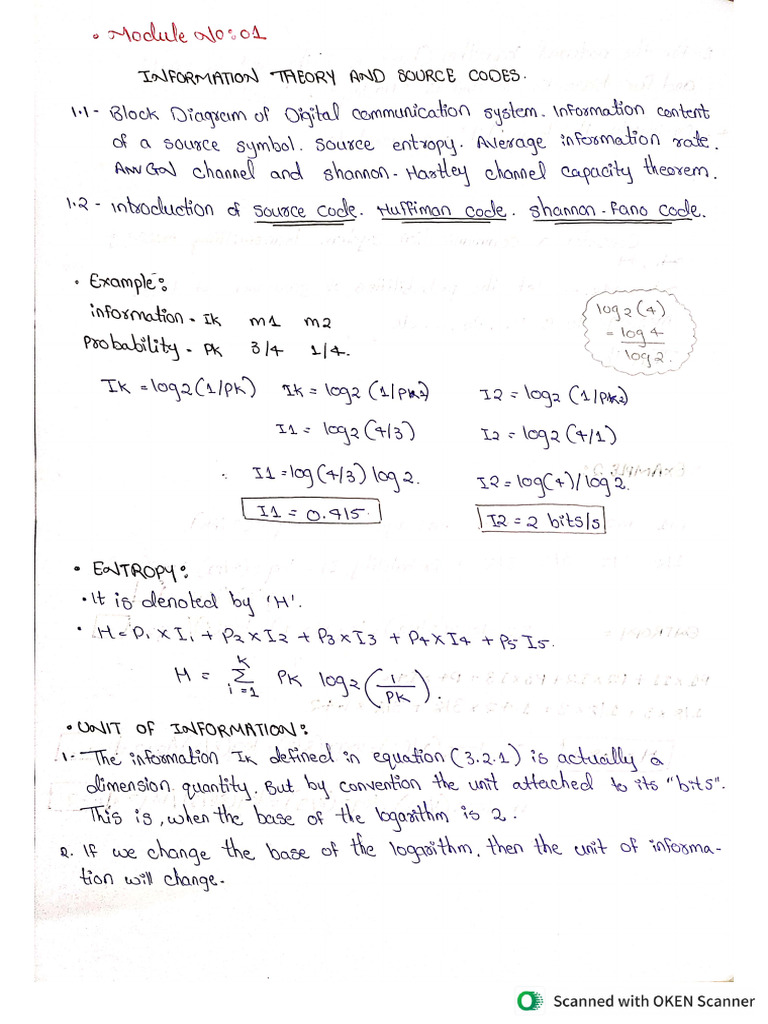 • Module No:01
INFORMATION THEORY AND SOURCE CODES.
1.1 - Block Diagram of Digital communication system. Information content
of a source symbol. Source entropy. Average information rate.
AWGN channel and shannon-Hartley channel capacity theorem.
1.2 - Introduction of source code. Huffiman code. Shannon-Fano Code.
• Example:
information - Ik m1 m2
Probability - Pk 3/4 1/4.
log2(4)
= log4
log2.
Ik = log2(1/PK) Ik = log2(1/PK1) I2 = log2(1/PK2)
I1 = log2(4/3) I2 = log2(4/1)
∴ I1 = log(4/3) log2. I2 = log(4)/log2.
I1 = 0.415. I2 = 2 bits/s
• ENTROPY:
• It is denoted by 'H'.
• H = P1 x I1 + P2 x I2 + P3 x I3 + P4 x I4 + P5 I5.
H = K Σ i=1 PK log2 (1/PK).
• UNIT OF INFORMATION:
1. - The information Ik defined in equation (3.2.1) is actually a
dimension quantity. But by convention the unit attached to its "bits".
This is, when the base of the logarithm is 2.
2. If we change the base of the logarithm, then the unit of informa-
tion will change.
Scanned with OKEN Scanner